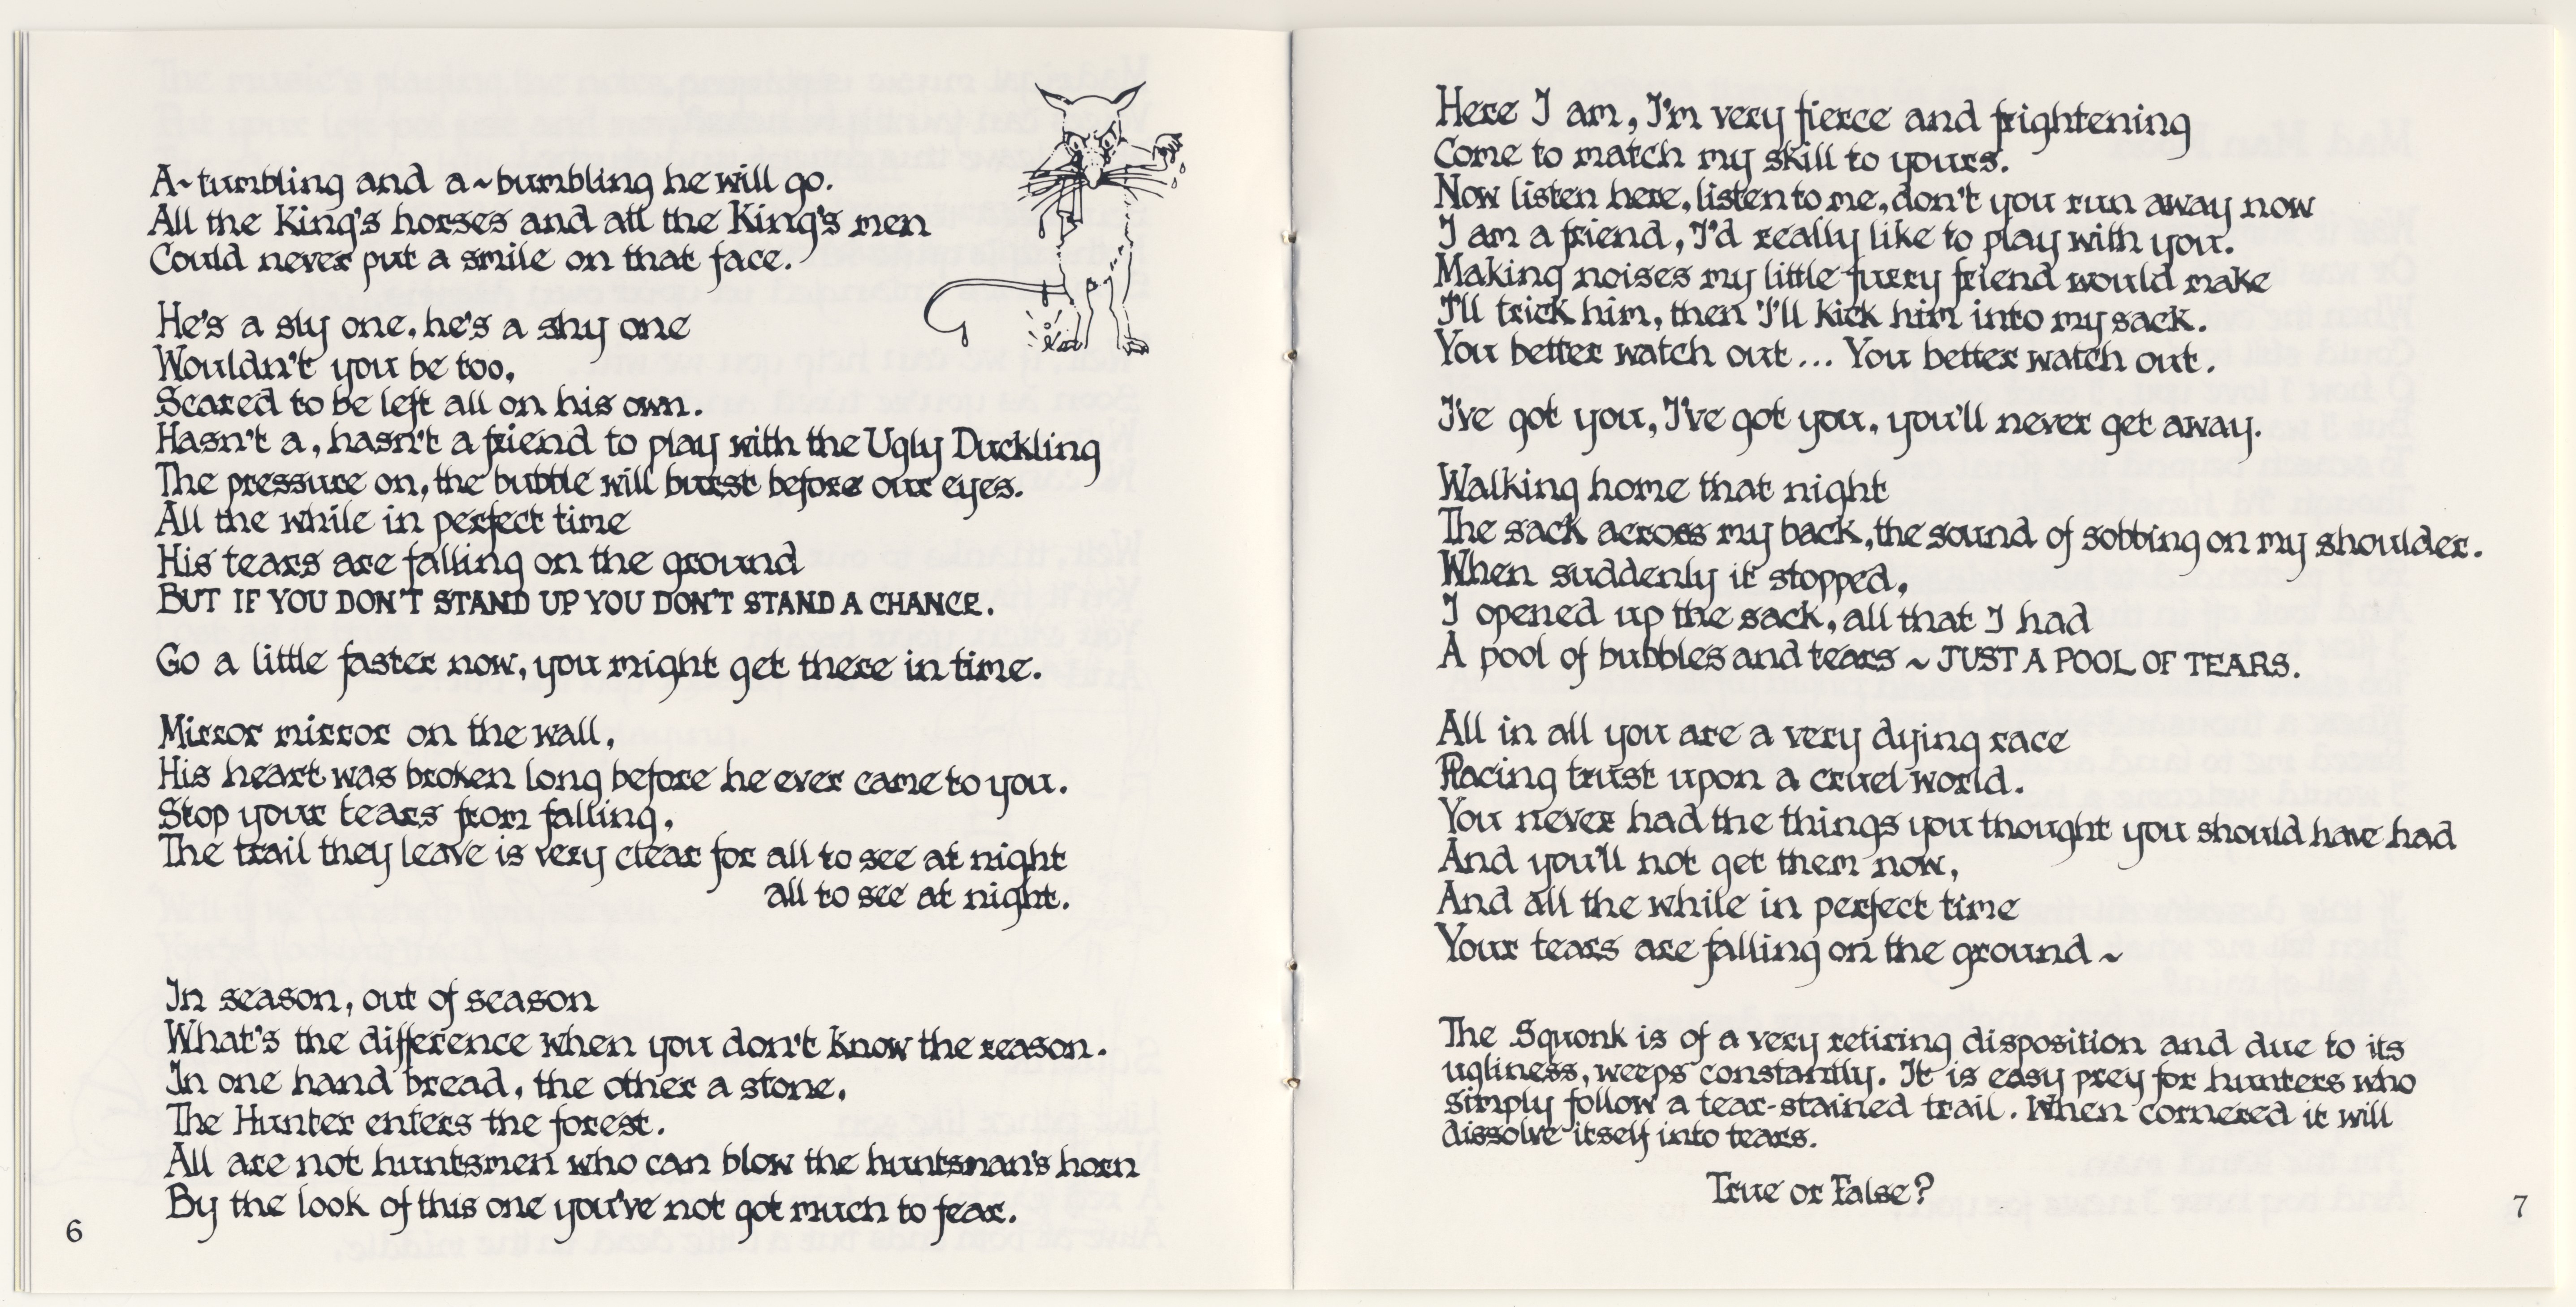 A~tumbling and a~bumbling he will go.
All the King's horses and all the King's men
Could never put a smile on that face.
He's a sly one, he's a shy one
Wouldn't you be too,
Scared to be left all on his own.
Hasn't a, hasn't a friend to play with the Ugly Duckling
The pressure on, the bubble will burst before our eyes.
All the while in perfect time
His tears are falling on the ground
BUT IF YOU DON'T STAND UP YOU DON'T STAND A CHANCE.
Go a little faster now, you might get there in time.
Mirror mirror on the wall,
His heart was broken long before he ever came to you.
Stop your tears from falling,
The trail they leave is very clear for all to see at night
all to see at night.
In season, out of season
What's the difference when you don't know the reason.
In one hand bread, the other a stone.
The Hunter enters the forest.
All are not huntsmen who can blow the huntsman's horn
By the look of this one you've not got much to fear.
6
Here I am, I'm very fierce and frightening
Come to match my skill to yours.
Now listen here, listen to me, don't you run away now
I am a friend, I'd really like to play with you.
Making noises my little furry friend would make
I'll trick him, then I'll kick him into my sack.
You better watch out... You better watch out.
I've got you, I've got you, you'll never get away.
Walking home that night
The sack across my back, the sound of sobbing on my shoulder.
When suddenly it stopped,
I opened up the sack, all that I had
A pool of bubbles and tears ~ JUST A POOL OF TEARS.
All in all you are a very dying race
Placing trust upon a cruel world.
You never had the things you thought you should have had
And you'll not get them now,
And all the while in perfect time
Your tears are falling on the ground ~
The Squonk is of a very retiring disposition and due to its
ugliness, weeps constantly. It is easy prey for hunters who
simply follow a tear-stained trail. When cornered it will
dissolve itself into tears.
True or False?
7